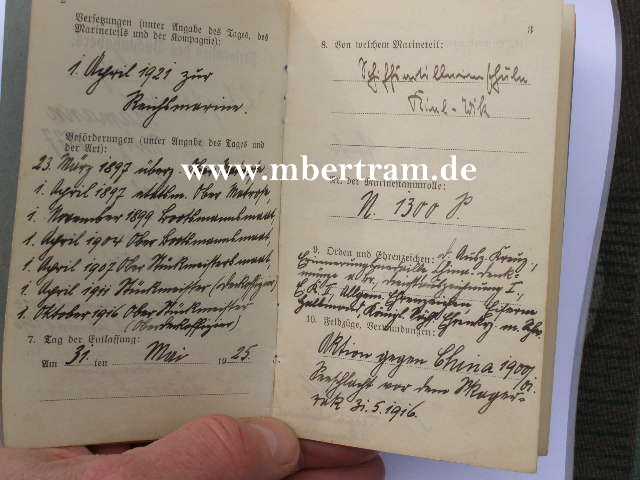 2
Versetzungen (unter Angabe des Tages, des
Marineteils und der Kompagnie):
1. April 1921 zur
Reichsmarine.
Beförderungen (unter Angabe des Tages und
der Art):
23. März 1897 überz.
1. April 1897 Ober Matrose,
1. November 1899 Bootsmannsmaat,
1. April 1904 Ober Bootsmannsmaat,
1. April 1907 Ober Stückmeistersmaat
1. April 1911 Stückmeister (Deckoffizier)
1. Oktober 1916 Ober Stückmeister
(Oberdeckoffizier)
7. Tag der Entlassung:
Am 31. ten Mai 1925.
3
8. Von welchem Marineteil:
Schiffsartillerieschule
Kiel-Wik
www.mbertram.de
Nr. der Marinestammrolle:
N. 1300 P.
9. Orden und Ehrenzeichen:
Erinnerungsmedaille China
E.K. I, Allgem. Ehrenzeichen, Eisern.
10. Feldzüge, Verwundungen:
Aktion gegen China 1900/01.
Seeschlacht vor dem Skager-
rak 31.5.1916.